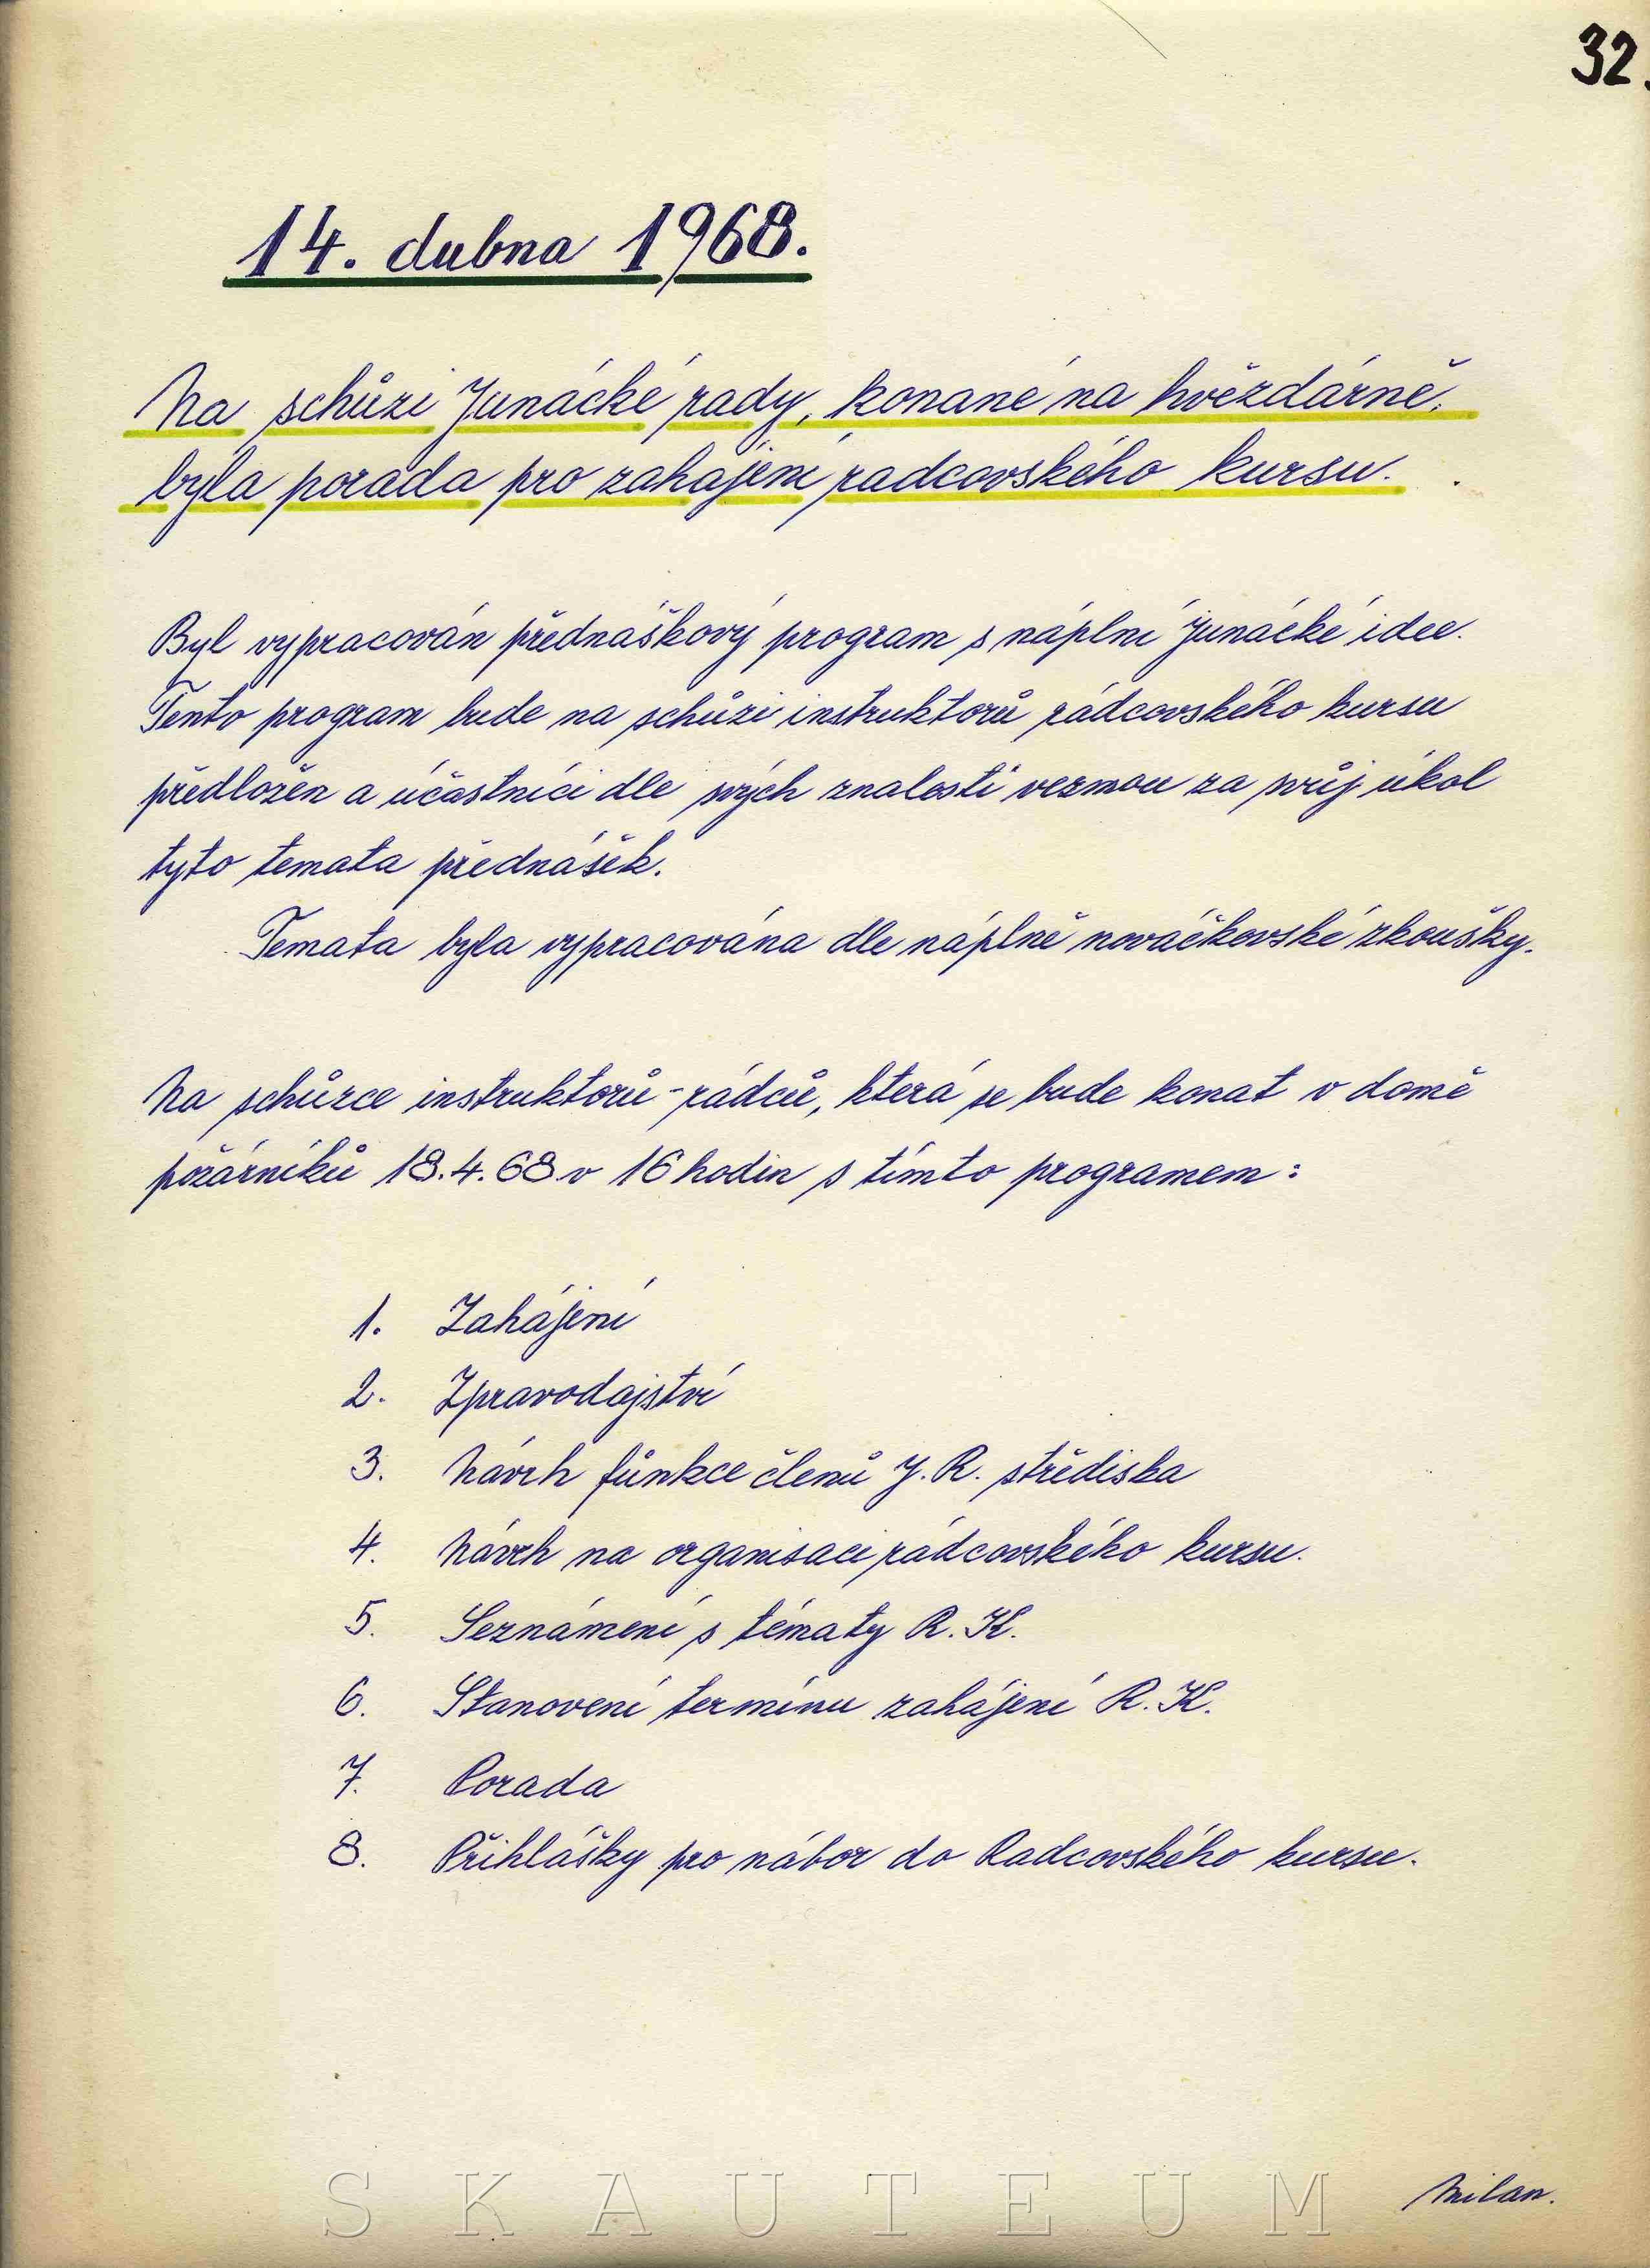 32.
14. dubna 1968.
Na schůzi Junácké rady, konané na hvězdárně,
byla porada pro zahájení radcovského kursu.
Byl vypracován přednáškový program s náplní Junácké idee.
Tento program bude na schůzi instruktorů rádcovského kursu
předložen a účastníci dle svých znalostí vezmou za svůj úkol
tyto temata přednášek.
Temata byla vypracována dle náplně nováčkovské zkoušky.
Na schůzce instruktorů-rádců, která se bude konat v domě
požárníků 18.4.68 v 16 hodin s tímto programem:
1. Zahájení
2. Zpravodajství
3. Návrh fůnkce členů J. R. střediska
4. Návrh na organisaci rádcovského kursu.
5. Seznámení s tématy R. K.
6. Stanovení termínu zahájení R. K.
7. Porada
8. Přihlášky pro nábor do Radcovského kursu.
Milan.
SKAUTEUM